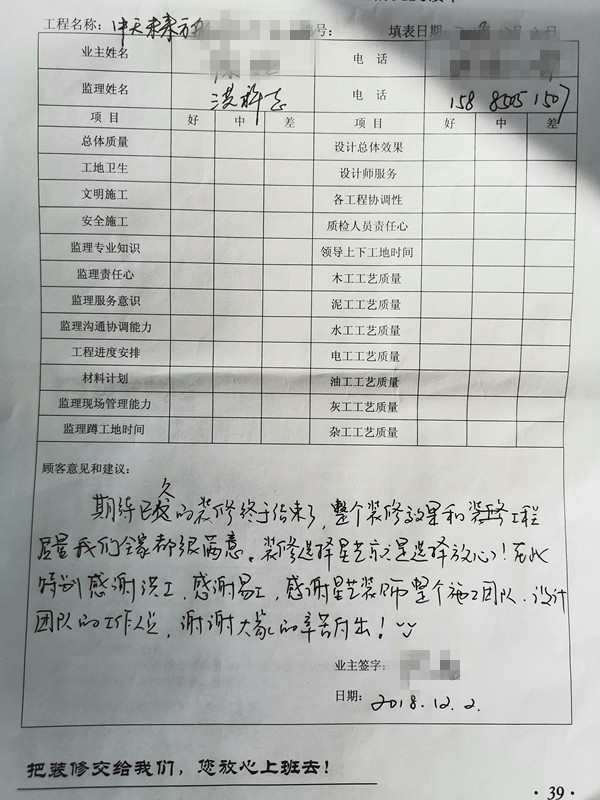 工程名称: 中天未来方舟 号: 填表日期:
业主姓名 电 话
监理姓名 洪 电 话 158 8505 1507
项 目 好 中 差 项 目 好 中 差
总体质量 设计总体效果
工地卫生 设计师服务
文明施工 各工程协调性
安全施工 质检人员责任心
监理专业知识 领导上下工地时间
监理责任心 木工工艺质量
监理服务意识 泥工工艺质量
监理沟通协调能力 水工工艺质量
工程进度安排 电工工艺质量
材料计划 油工工艺质量
监理现场管理能力 灰工工艺质量
监理蹲工地时间 杂工工艺质量
顾客意见和建议:
期待已久的装修终于结束了,整个装修效果和装修工程
质量我们全家都很满意。装修选择星艺就是选择放心!在此
特别感谢洪工,感谢易工,感谢星艺装饰整个施工团队、设计
团队的工作人员,谢谢大家的辛苦付出!
业主签字:
日期: 2018.12.2.
把装修交给我们,您放心上班去!
· 39 ·